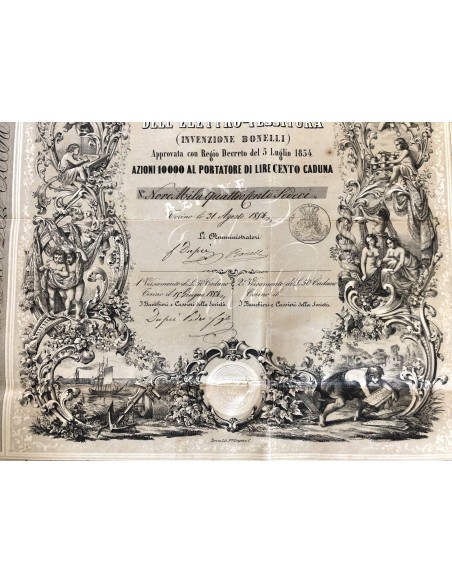 DELL'ELETTRO-TESSITURA
(INVENZIONE BONELLI)
Approvata con Regio Decreto del 5 Luglio 1854
AZIONI 10000 AL PORTATORE DI LIRE CENTO CADUNA
N° Nove Mila Quattrocento
AZIONE
Torino il 21 Agosto 1854
Gli Amministratori
Dupré Bonelli
1° Versamento di L. 50 Caduna 2° Versamento di L. 50 Caduna
Torino il 15 Giugno 1854 Torino il
I Banchieri e Cassieri della Società I Banchieri e Cassieri della Società
Dupré Padre